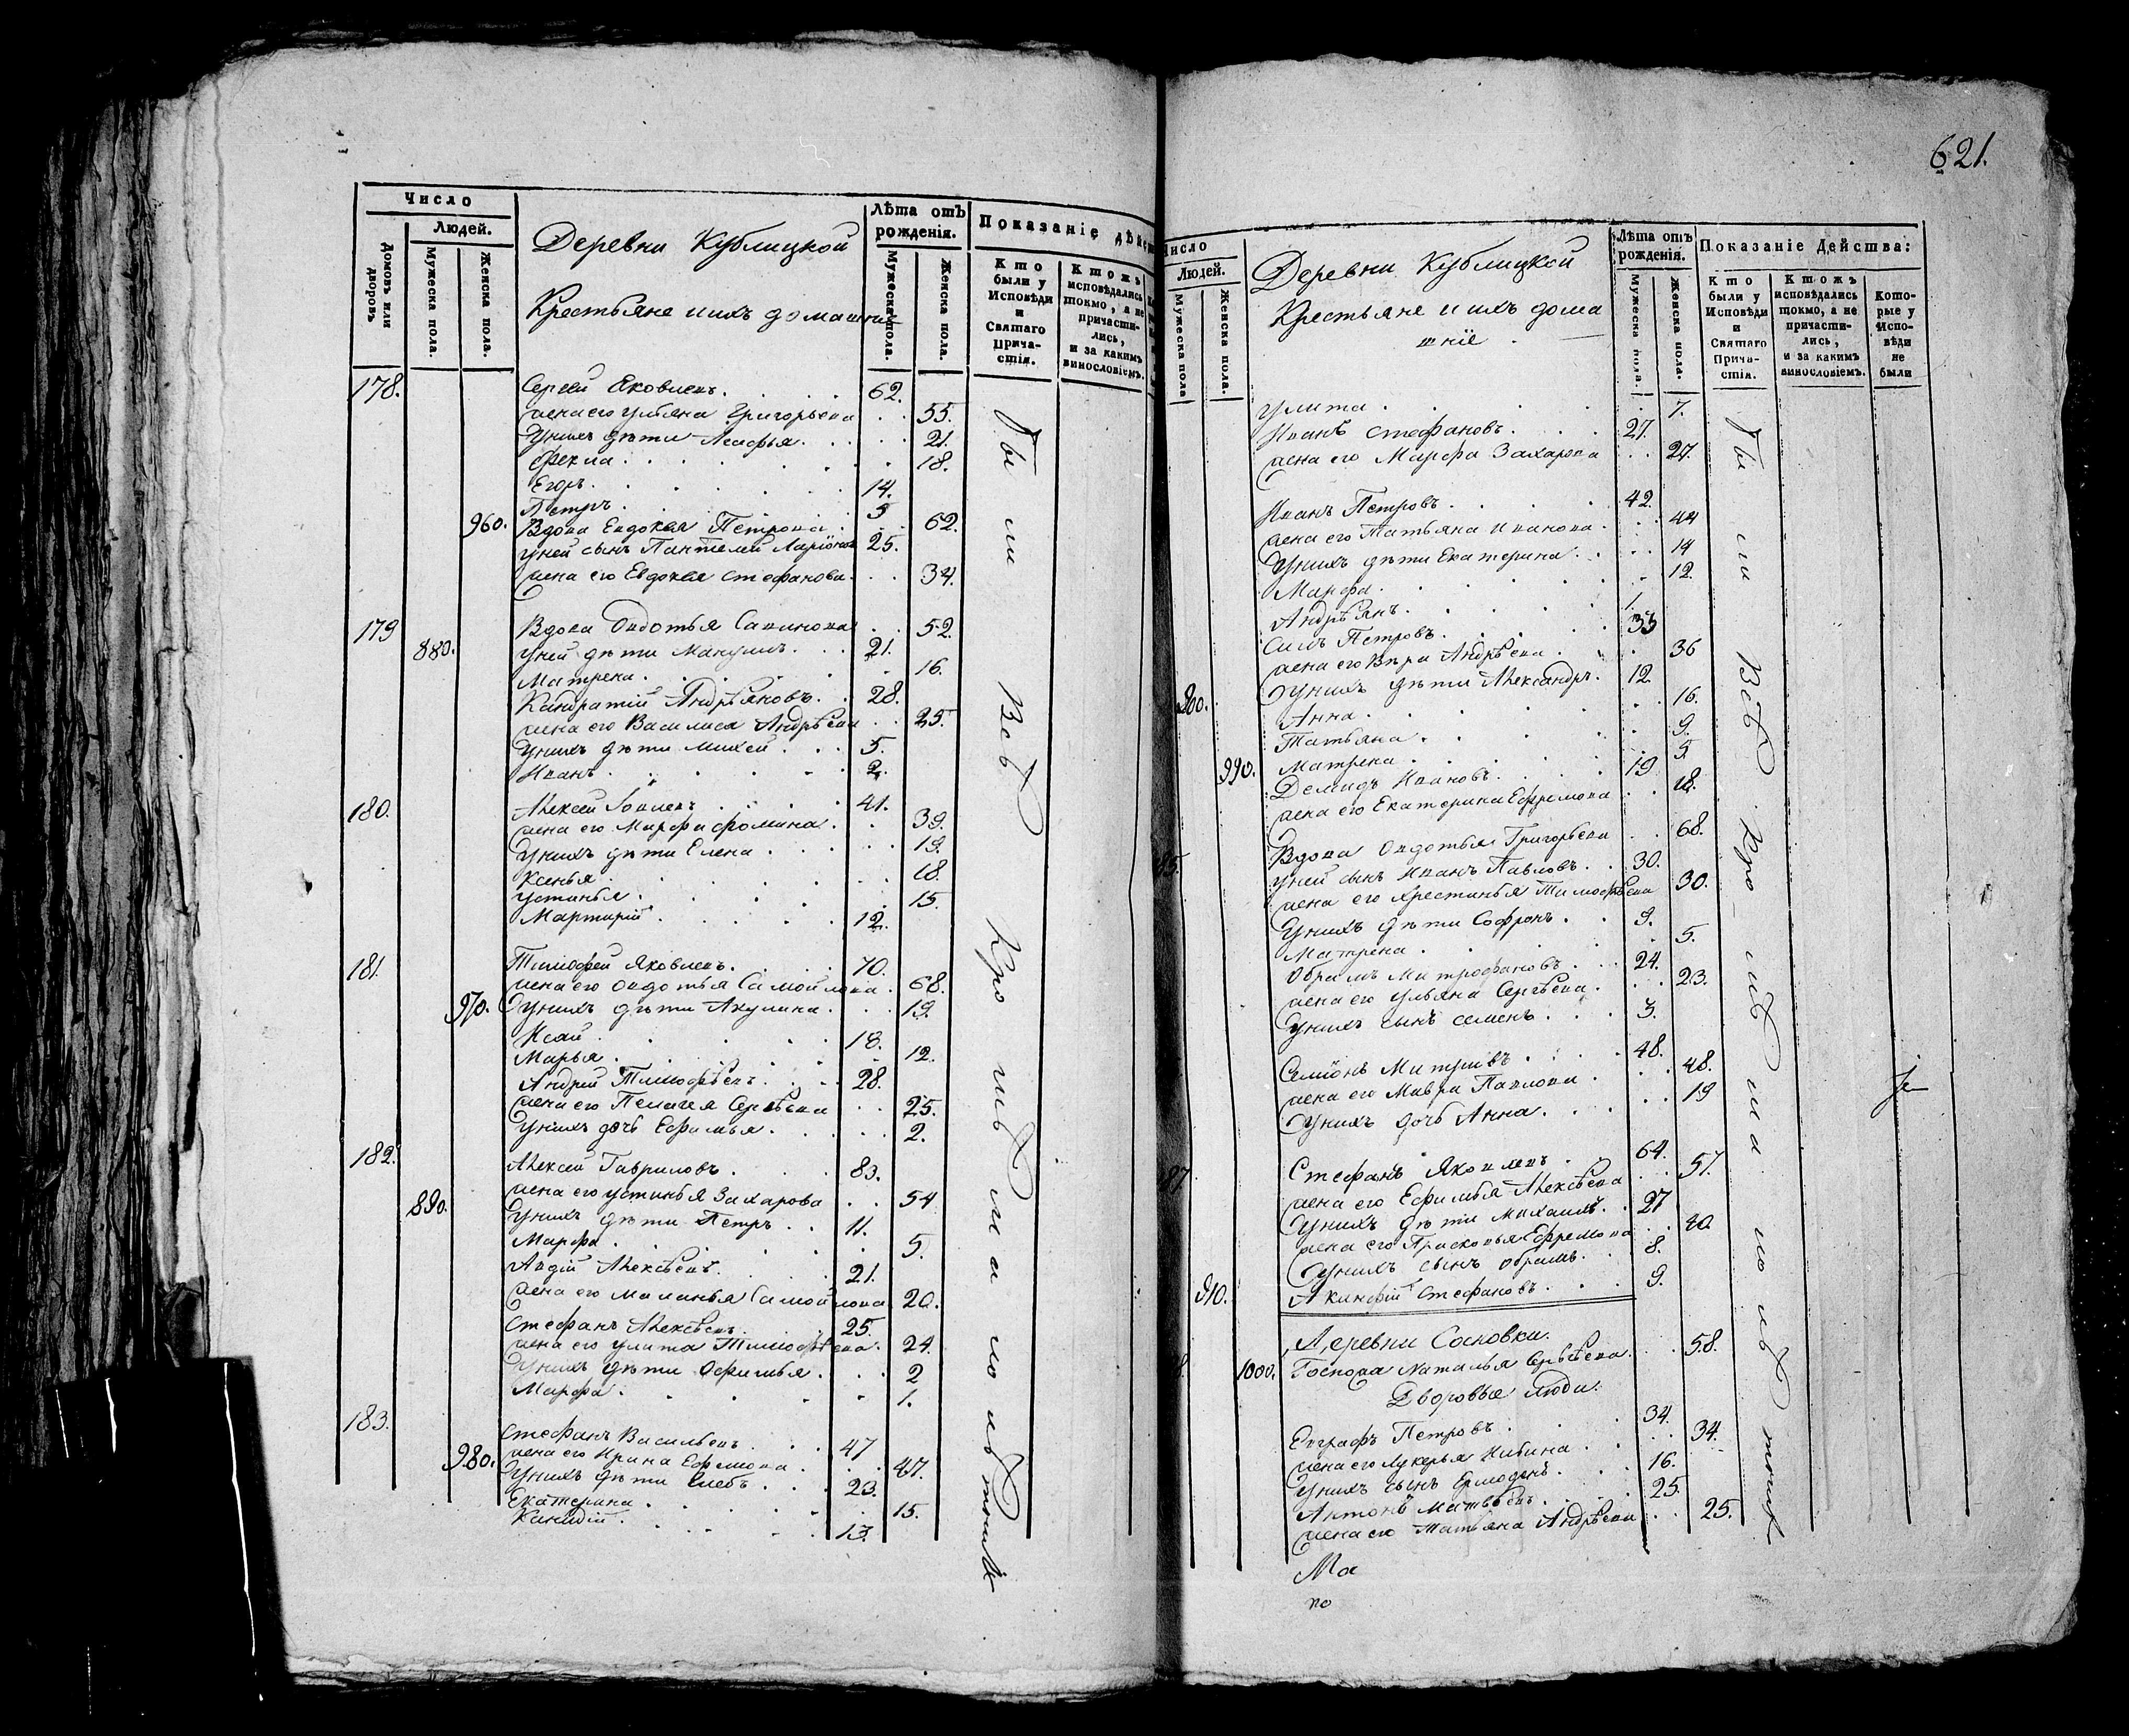 Число
Людей.
Домовъ или дворовъ
Мужеска пола.
Женска пола.
Деревни Кублицкой
Крестьяне и ихъ домашние
Лѣта отъ рожденія.
Мужеска пола.
Женска пола.
Показаніе дѣйст
Кто были у Исповѣди и Святаго Прича-стія.
Ктожъ исповѣдались токмо, а не причасти-лись, и за какимъ винословіемъ.
178. Сергей Яковлевъ 62.
жена его Ульяна Григорьева 55.
У нихъ дѣти Агафья 21.
Фекла 18.
Егоръ 14.
Петръ 5
960. Вдова Евдокея Петрова 62.
У ней сынъ Пантелей 25.
жена его Евдокея Стефанова 34.
179 Вдова Овдотья Савинова 52.
880. У ней дѣти 21.
Матрена 16.
Кандратий Андрѣяновъ 28.
жена его Василиса Андрѣева 25.
У нихъ дѣти Михей 5.
Иванъ 2.
180. Алексей 41.
жена его Марфа Фомина 39.
У нихъ дѣти Елена 19.
Ксенья 18.
Устинья 15.
Мартирій 12.
181. Тимофей Яковлевъ 70.
жена его Овдотья Самойлова 68.
970. У нихъ дѣти Акулина 19.
Исай 18.
Марья 12.
Андрей Тимофѣевъ 28.
жена его Пелагея Сергѣева 25.
У нихъ дочь Ефимья 2.
182. Алексей Гавриловъ 83.
жена его Устинья Захарова 54
890. У нихъ дѣти Петръ 11.
Марфа 5.
Авдій Алексѣевъ 21.
жена его Маланья Самойлова 20.
Стефанъ Алексѣевъ 25.
жена его Улита Тимофѣева 24.
У нихъ дѣти Офимья 2
Марфа 1.
183. Стефанъ Васильевъ 47
жена его Ирина Ефремова 47.
980. У нихъ дѣти Глебъ 23.
Екатерина 15.
13.
Бы ли Всѣ Кро мѣ ма ло лѣтнихъ
621.
Число
Людей.
Мужеска пола
Женска пола.
Деревни Кублицкой
Крестьяне и ихъ дома
шніе
Лѣта отъ рожденія.
Мужеска пола.
Женска пола.
Показаніе Действа:
Кто были у Исповѣди и Святаго Прича-стія.
Ктожъ исповѣдались токмо, а не причасти-лись, и за какимъ винословіемъ.
Кото-рые у Испо-вѣди не были
Улита 7.
Иванъ Стефановъ 27.
жена его Марфа Захарова 27.
Иванъ Петровъ 42.
жена его Татьяна Иванова 44
У нихъ дѣти Екатерина 14
Марфа 12.
Андрѣянъ 1.
Петровъ 33
жена его Вѣра Андрѣева 36
900. У нихъ дѣти Александръ 12.
Анна 16.
Татьяна 9.
990. Матрена 5
Демидъ Ивановъ 19
жена его Екатерина Ефремова 18.
85. Вдова Овдотья Григорьева 68.
У ней сынъ Иванъ Павловъ 30.
жена его Хрестинья Тимофѣева 30.
У нихъ дѣти Софронъ 9.
Матрена 5.
Обрамъ Митрофановъ 24.
жена его Ульяна Сергѣева 23.
У нихъ сынъ Семенъ 3.
Семіонъ 48.
жена его Мавра Павлова 48.
У нихъ дочь Анна 19
87 Стефанъ Яковлевъ 64.
жена его Ефимья Алексѣева 57.
У нихъ дѣти Михаилъ 27
жена его Прасковья Ефремова 40.
У нихъ сынъ Обрамъ 8.
910. Аканфій Стефановъ 9.
Деревни Сосновки.
8. 1000. Госпожа Наталья Сергѣева 58.
Дворовые люди.
Евграфъ Петровъ 34.
жена его Лукерья 34.
У нихъ сынъ 16.
Антонъ Матвѣевъ 25.
жена его Татьяна Андрѣева 25.
Бы ли Всѣ Кро-мѣ ма ло лѣтних
Ма
по